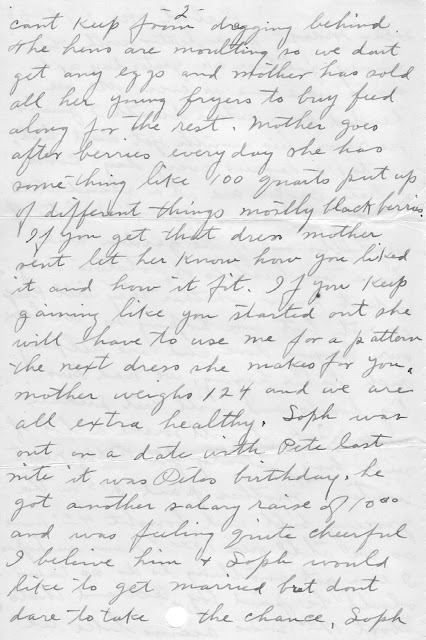 2
cant keep from dragging behind.
the hens are moulting so we dont
get any eggs and mother has sold
all her young fryers to buy feed
along for the rest. Mother goes
after berries everyday she has
something like 100 quarts put up
of different things mostly blackberries.
If you get that dress mother
sent let her know how you liked
it and how it fit. If you keep
gaining like you started out she
will have to use me for a pattern
the next dress she makes for you.
mother weighs 124 and we are
all extra healthy. Soph was
out on a date with Pete last
nite it was Petes birthday. he
got another salary raise of 10.00
and was feeling quite cheerful
I belive him & Soph would
like to get married but dont
dare to take the chance. Soph